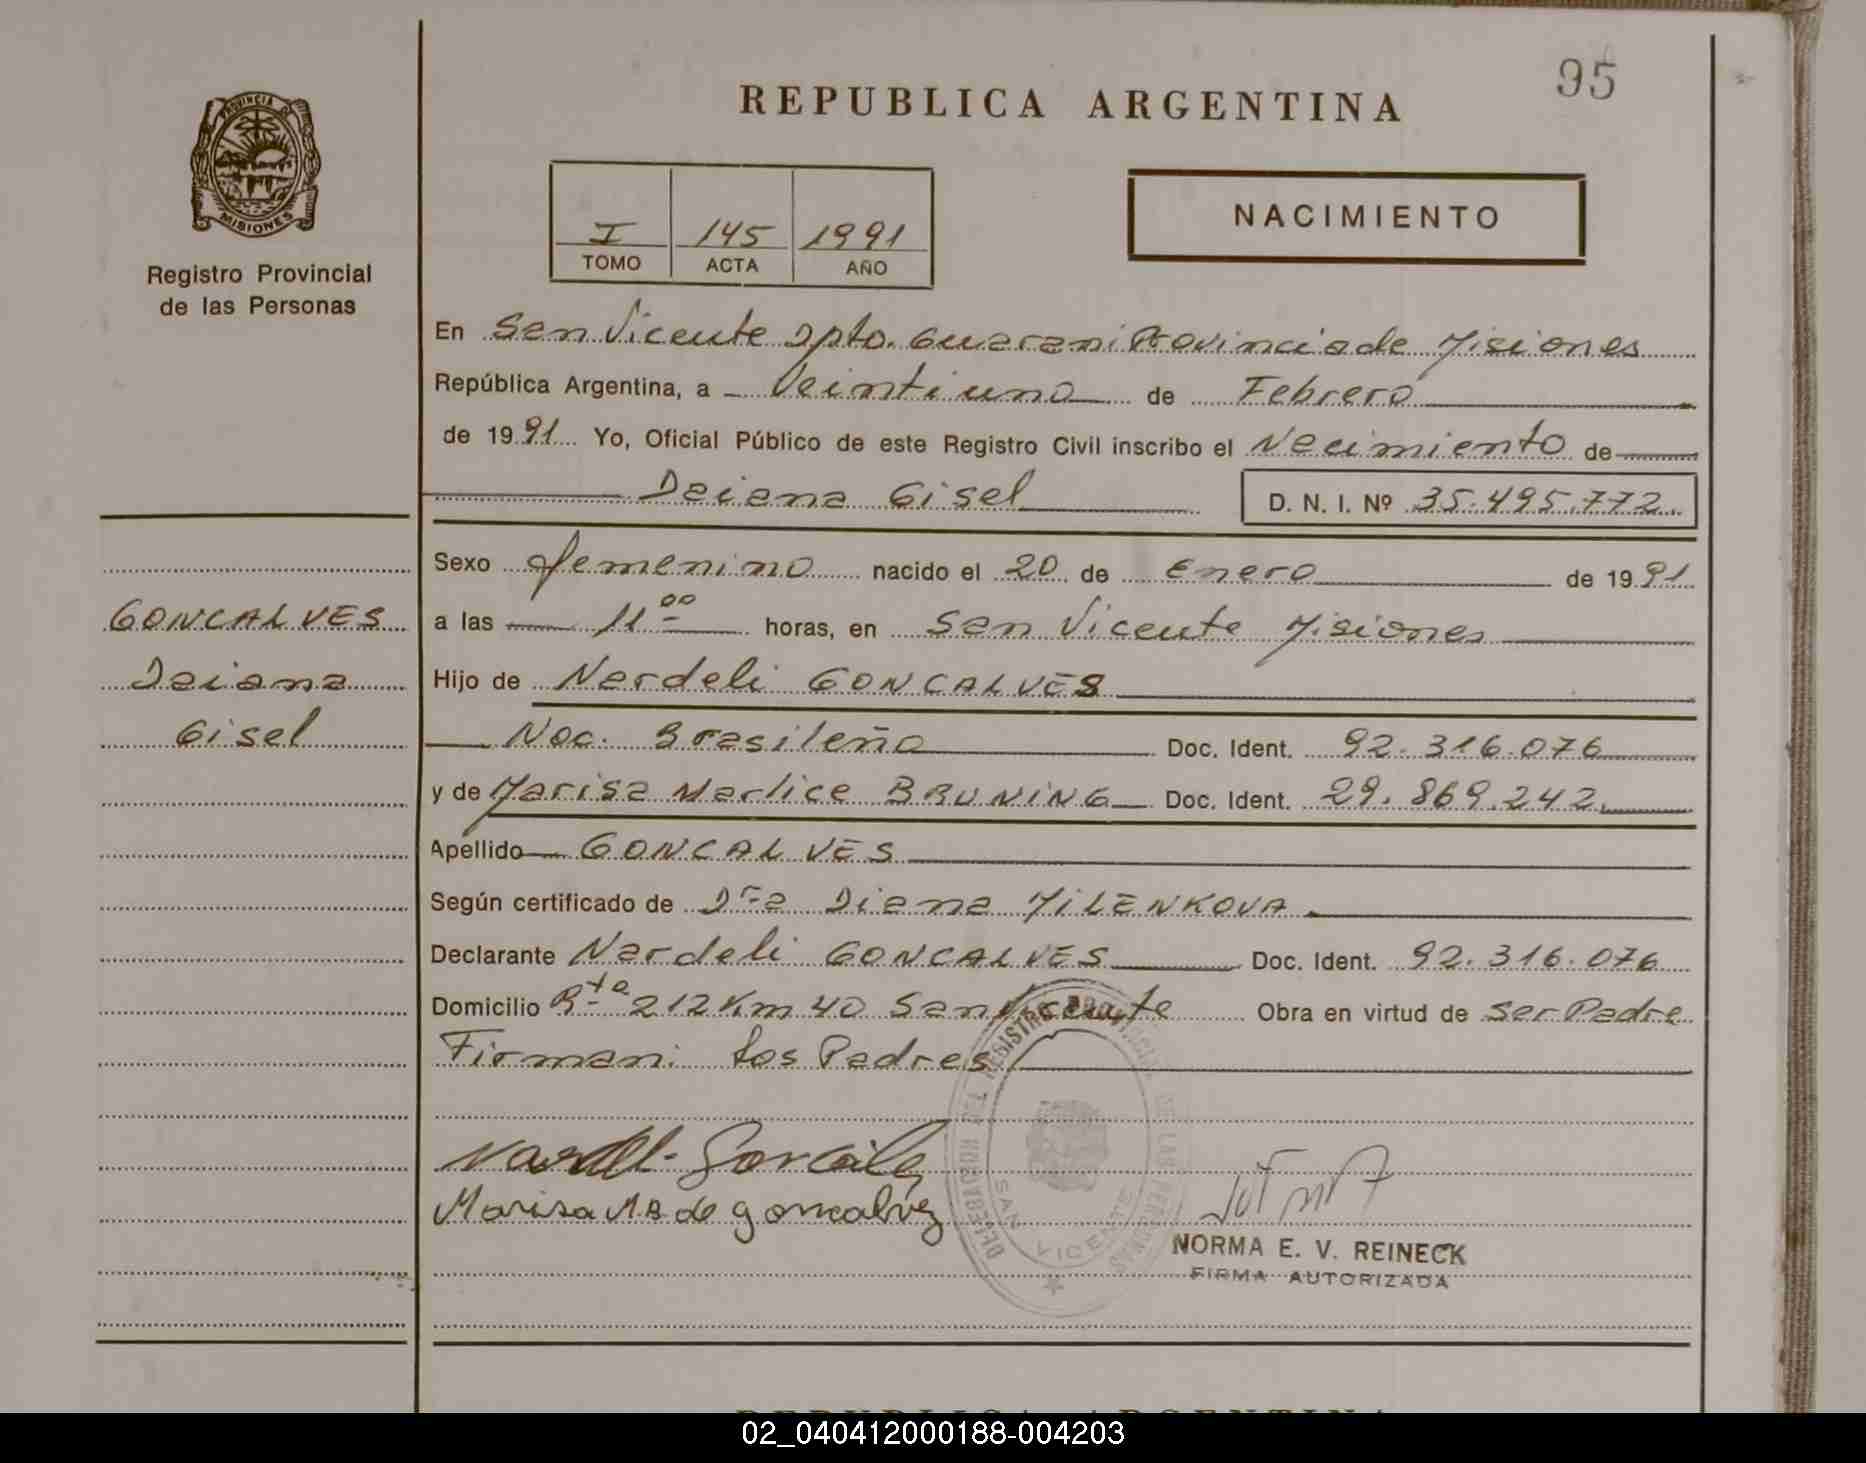 95
REPUBLICA ARGENTINA
PROVINCIA DE
MISIONES
Registro Provincial
de las Personas
I 145 1991
TOMO ACTA AÑO
NACIMIENTO
En San Vicente Dpto. Guarani Provincia de Misiones
República Argentina, a Veintiuno de Febrero
de 1991 Yo, Oficial Público de este Registro Civil inscribo el Nacimiento de
Daiana Gisel D. N. I. Nº 35.495.772.
Sexo femenino nacido el 20 de Enero de 1991
GONCALVES
Daiana
Gisel
a las 11 00 horas, en San Vicente Misiones
Hijo de Nardeli GONCALVES
Nac. Brasileña Doc. Ident. 92.316.076
y de Marisa Marlice BRUNING Doc. Ident. 29.869.242
Apellido GONCALVES
Según certificado de Dra Diana MILENKOVA
Declarante Nardeli GONCALVES Doc. Ident. 92.316.076
Domicilio Rta 212 Km 40 San Vicente Obra en virtud de Ser Padre
Firman: Los Padres
Marisa M B de goncalvez
DELEGACION DEL REGISTRO PROVINCIAL DE LAS PERSONAS
SAN VICENTE
NORMA E. V. REINECK
FIRMA AUTORIZADA
REPUBLICA ARGENTINA
02_040412000188-004203